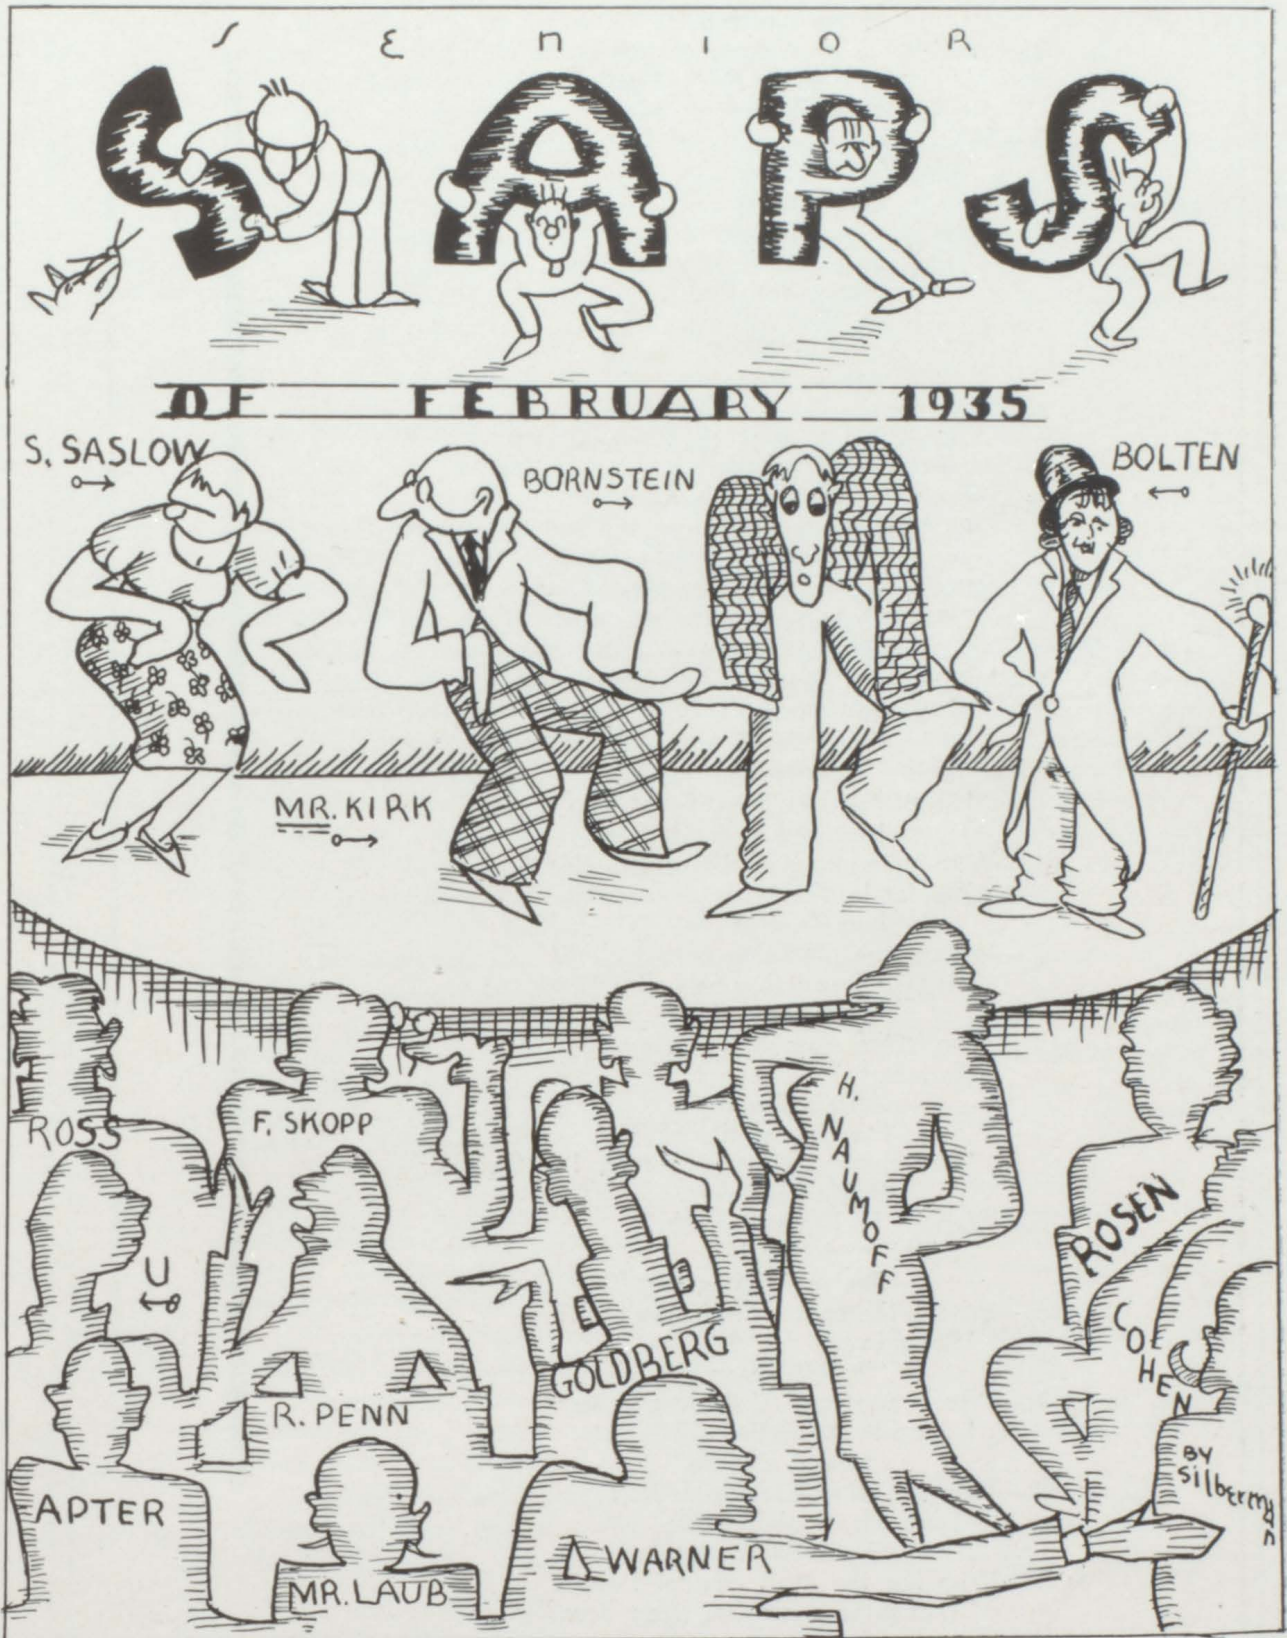 SENIOR
SAPS
OF FEBRUARY 1935
S. SASLOW
BORNSTEIN
BOLTEN
MR. KIRK
ROSS
F. SKOPP
H. NAUMOFF
ROSEN
U
COHEN
GOLDBERG
R. PENN
APTER
MR. LAUB
WARNER
BY
Silberman